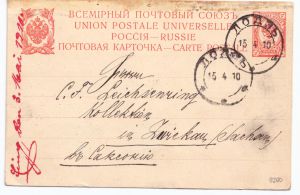 ВСЕМІРНЫЙ ПОЧТОВЫЙ СОЮЗЪ
UNION POSTALE UNIVERSELLE
РОССІЯ—RUSSIE
ПОЧТОВАЯ КАРТОЧКА—CARTE
ЛОДЗЬ
15 4 10
ЛОДЗЬ
15 4 10
Herrn
C. F. Leichsenring
in Zwickau (Sachsen)
въ Саксонію